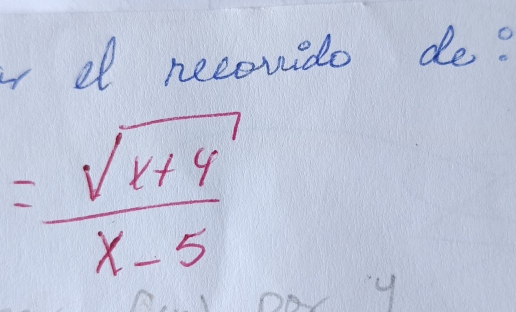 el recorrido de:
= √(x+4)
x-5
por y